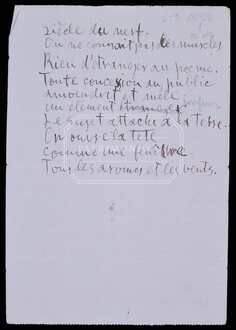 siècle du nerf.
On ne connait pas les muscles
Rien d'étranger au poème.
Toute concession au public
amoindrit et mêle
un element étranger
Le sujet attache à la terre.
On ouvre la tête
comme une fenêtre
Tous les aromes et les vents.